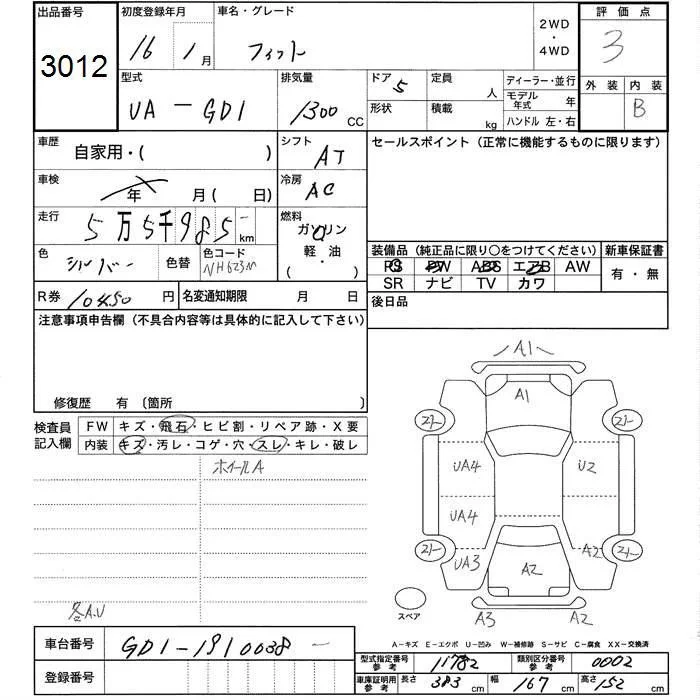 出品番号
3012
初度登録年月
16 1月
車名・グレード
フィット
2WD
・
4WD
評価点
3
外装 内装
B
型式
UA-GD1
排気量
1300 CC
ドア 5
形状
定員 人
積載 kg
ディーラー・並行
モデル年式 年
ハンドル 左・右
車歴
自家用・( )
車検
年 月( 日)
走行
5万5千985- km
色
シルバー
色替
色コード
NH623M
シフト
AT
冷房
AC
燃料
ガソリン
軽・油
( ・ )
セールスポイント(正常に機能するものに限ります)
装備品(純正品に限り○をつけてください)
PS PW ABS エアB AW
SR ナビ TV カワ
新車保証書
有・無
後日品
R券 10450 円
名変通知期限 月 日
注意事項申告欄(不具合内容等は具体的に記入して下さい)
修復歴 有 〔箇所 〕
検査員記入欄
FW キズ・飛石・ヒビ割・リペア跡・X要
内装 キズ・汚レ・コゲ・穴・スレ・キレ・破レ
ホイールA
各A.U
A1
A1
UA4
U2
UA4
UA3
A2
A2
A3
A2
スペア
A-キズ E-エクボ U-凹み W-補修跡 S-サビ C-腐食 XX-交換済
車台番号
GD1-1910038-
登録番号
型式指定番号参考 11782
類別区分番号参考 0002
車庫証明用参考 長さ 383 cm 幅 167 cm 高さ 152 cm